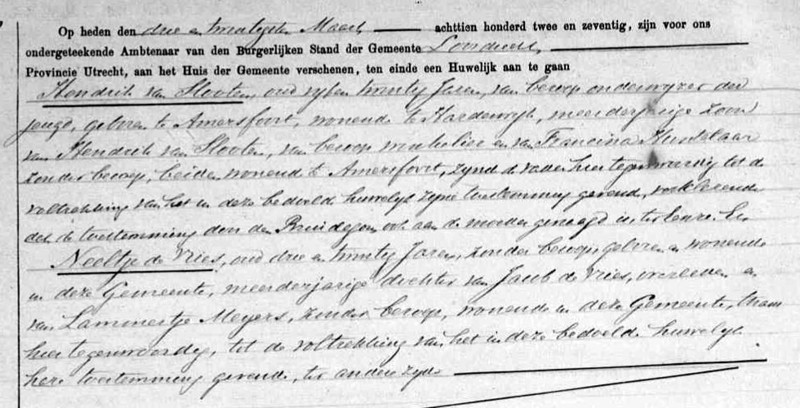 Op heden den drie en twintigsten Maart achttien honderd twee en zeventig, zijn voor ons
ondergeteekende Ambtenaar van den Burgerlijken Stand der Gemeente
Provincie Utrecht, aan het Huis der Gemeente verschenen, ten einde een Huwelijk aan te gaan
Hendrik van Slooten, oud vyf en twintig Jaren, van beroep onderwyzer der
jeugd, geboren te Amersfoort, wonende te Harderwyk, meerderjarige zoon
van Hendrik van Slooten, van beroep winkelier en van Francina
zonder beroep, beiden wonend te Amersfoort, zynde de vader hier tegenwoordig tot de
voltrekking van het in deze bedoelde huwelyk zyne toestemming gevend, verklarende
dat de toestemming door den Bruidegom ook aan de moeder gevraagd is, ter eenre. En
Neeltje de Vries, oud drie en twintig Jaren, zonder beroep, geboren en wonende
in deze Gemeente, meerderjarige dochter van Jacob de Vries, overleden en
van Lammertje Meyers, zonder beroep, wonende in deze Gemeente,
hier tegenwoordig, tot de voltrekking van het in deze bedoelde huwelyk
hare toestemming gevende, ter andere zyde